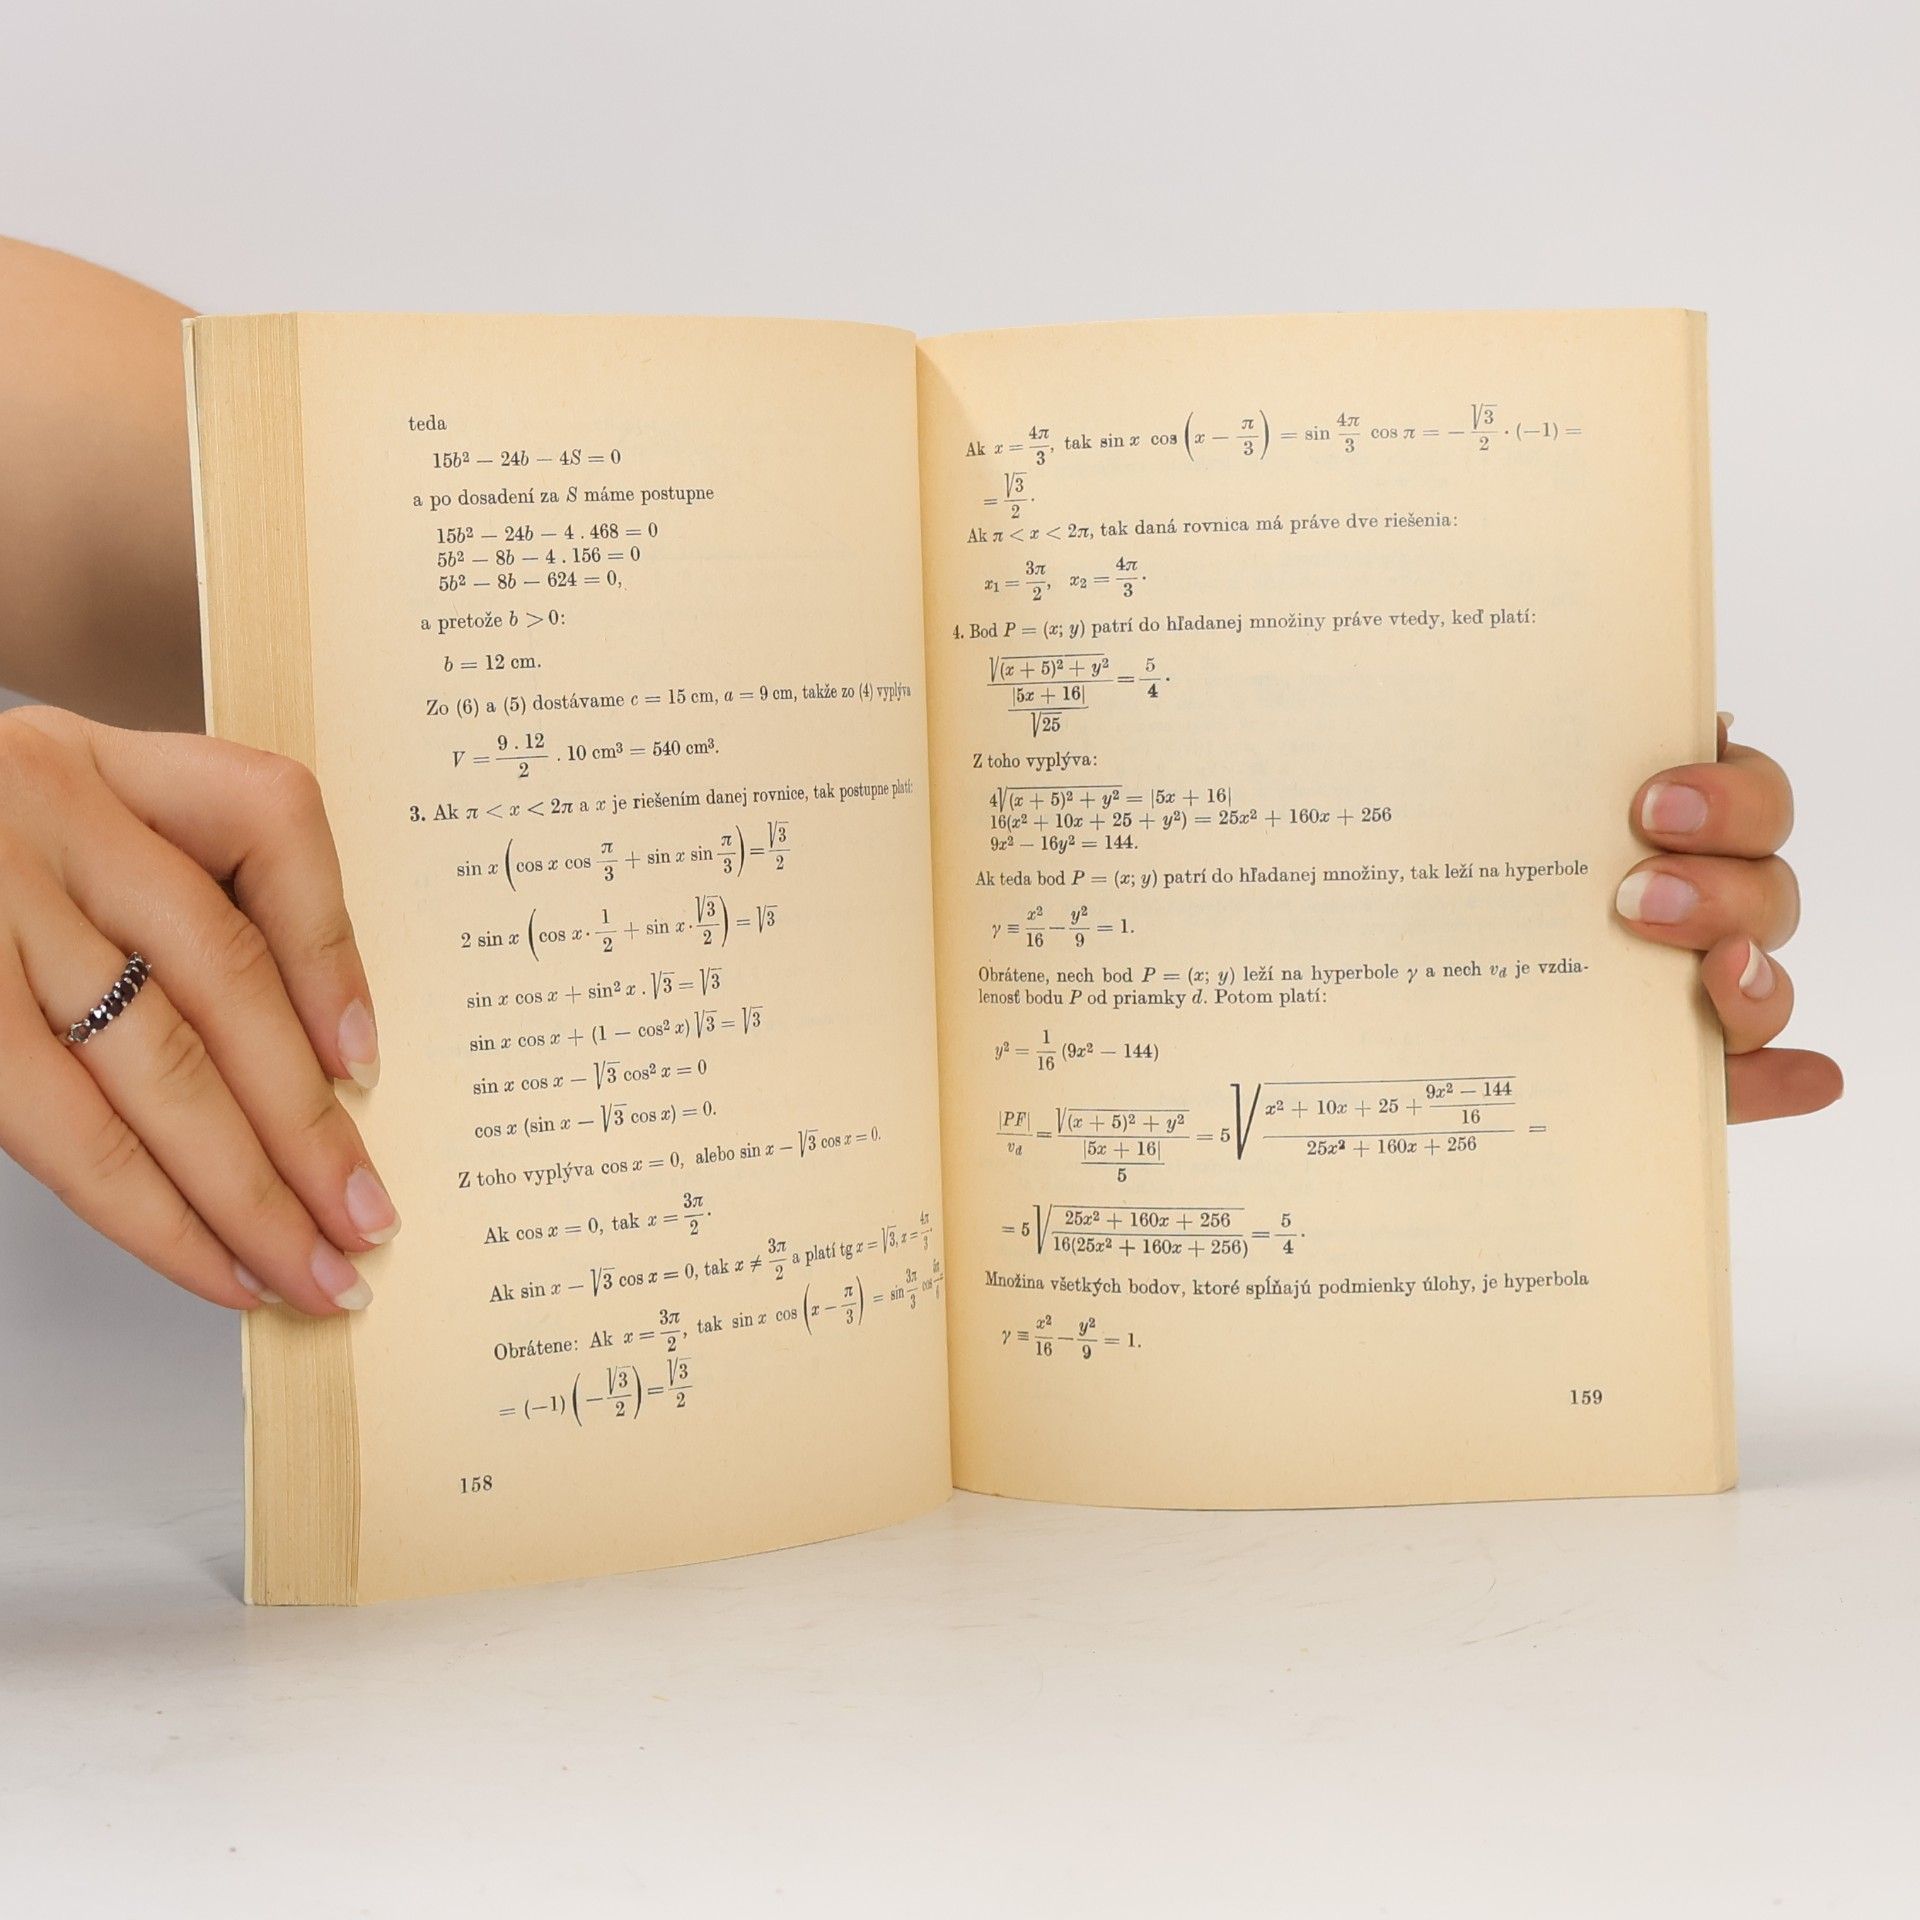 teda
15b² — 24b — 4S = 0
a po dosadení za S máme postupne
15b² — 24b — 4 . 468 = 0
5b² — 8b — 4 . 156 = 0
5b² — 8b — 624 = 0,
a pretože b > 0:
b = 12 cm.
Zo (6) a (5) dostávame c = 15 cm, a = 9 cm, takže zo (4) vyplýva
V = 9 . 12 / 2 . 10 cm³ = 540 cm³.
3. Ak π < x < 2π a x je riešením danej rovnice, tak postupne platí:
sin x (cos x cos π/3 + sin x sin π/3) = √3/2
2 sin x (cos x · 1/2 + sin x · √3/2) = √3
sin x cos x + sin² x . √3 = √3
sin x cos x + (1 — cos² x) √3 = √3
sin x cos x — √3 cos² x = 0
cos x (sin x — √3 cos x) = 0.
Z toho vyplýva cos x = 0, alebo sin x — √3 cos x = 0.
Ak cos x = 0, tak x = 3π/2.
Ak sin x — √3 cos x = 0, tak x ≠ 3π/2 a platí tg x = √3, x = 4π/3.
Obrátene: Ak x = 3π/2, tak sin x cos (x — π/3) = sin 3π/3 cos
= (—1) (—√3/2) = √3/2
158
Ak x = 4π/3, tak sin x cos (x — π/3) = sin 4π/3 cos π = — √3/2 · (—1) =
= √3/2.
Ak π < x < 2π, tak daná rovnica má práve dve riešenia:
x₁ = 3π/2, x₂ = 4π/3.
4. Bod P = (x; y) patrí do hľadanej množiny práve vtedy, keď platí:
√((x + 5)² + y²) / (|5x + 16| / √25) = 5/4.
Z toho vyplýva:
4√((x + 5)² + y²) = |5x + 16|
16(x² + 10x + 25 + y²) = 25x² + 160x + 256
9x² — 16y² = 144.
Ak teda bod P = (x; y) patrí do hľadanej množiny, tak leží na hyperbole
γ ≡ x²/16 — y²/9 = 1.
Obrátene, nech bod P = (x; y) leží na hyperbole γ a nech v_d je vzdia-
lenosť bodu P od priamky d. Potom platí:
y² = 1/16 (9x² — 144)
|PF|/v_d = √((x + 5)² + y²) / (|5x + 16| / 5) = 5 √((x² + 10x + 25 + (9x² — 144)/16) / (25x² + 160x + 256)) =
= 5 √((25x² + 160x + 256) / (16(25x² + 160x + 256))) = 5/4.
Množina všetkých bodov, ktoré spĺňajú podmienky úlohy, je hyperbola
γ ≡ x²/16 — y²/9 = 1.
159